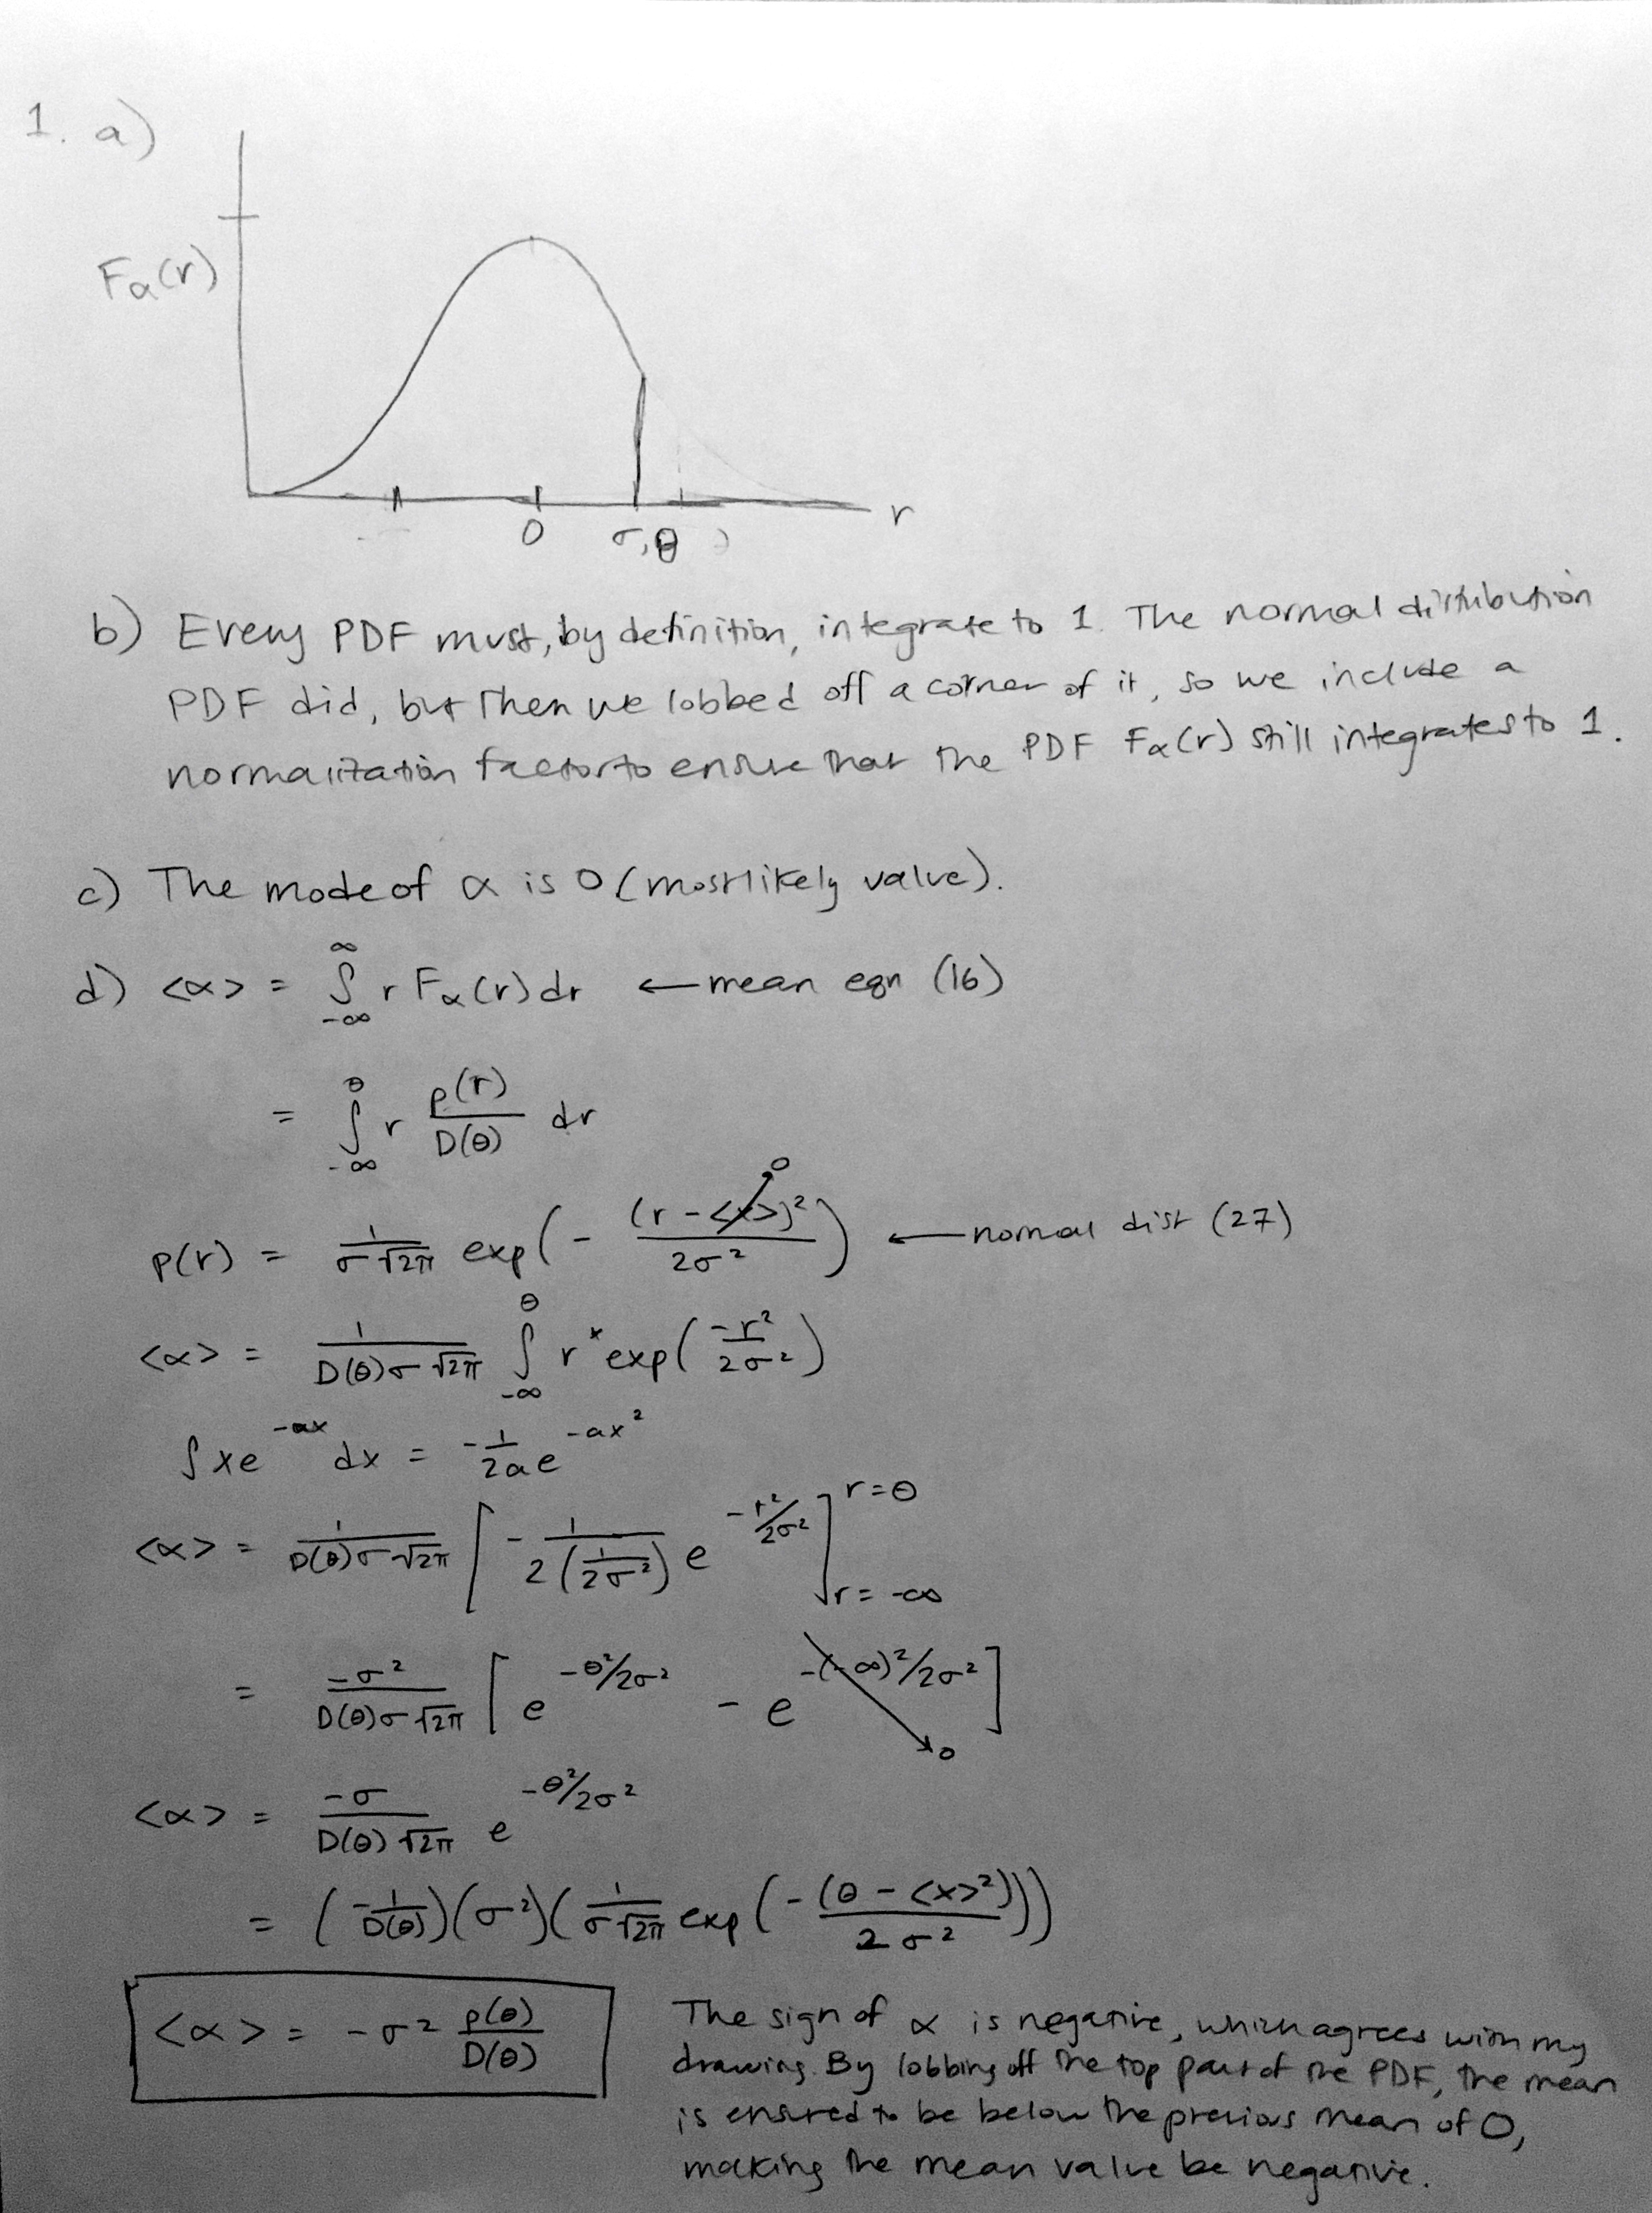 1. a)
Fα(r)
0 σ,θ r
b) Every PDF must, by definition, integrate to 1. The normal distribution
PDF did, but then we lobbed off a corner of it, so we include a
normalization factor to ensure that the PDF Fα(r) still integrates to 1.
c) The mode of α is 0 (most likely value).
d) <α> = ∫_{-∞}^{∞} r Fα(r) dr ← mean eqn (16)
= ∫_{-∞}^{θ} r p(r)/D(θ) dr
p(r) = 1/(σ√2π) exp(- (r - <x>)²/2σ²) ← normal dist (27)
0
<α> = 1/(D(θ)σ√2π) ∫_{-∞}^{θ} r * exp(-r²/2σ²)
∫ x e^{-ax} dx = -1/2a e^{-ax²}
<α> = 1/(D(θ)σ√2π) [ - 1/(2(1/2σ²)) e^{-r²/2σ²} ]_{r=-∞}^{r=θ}
= -σ²/(D(θ)σ√2π) [ e^{-θ²/2σ²} - e^{-(-∞)²/2σ²} ]
0
<α> = -σ/(D(θ)√2π) e^{-θ²/2σ²}
= (-1/D(θ))(σ²)(1/(σ√2π) exp(-(θ - <x>²)/2σ²))
<α> = -σ² p(θ)/D(θ)
The sign of α is negative, which agrees with my
drawing. By lobbing off the top part of the PDF, the mean
is ensured to be below the previous mean of 0,
making the mean value be negative.